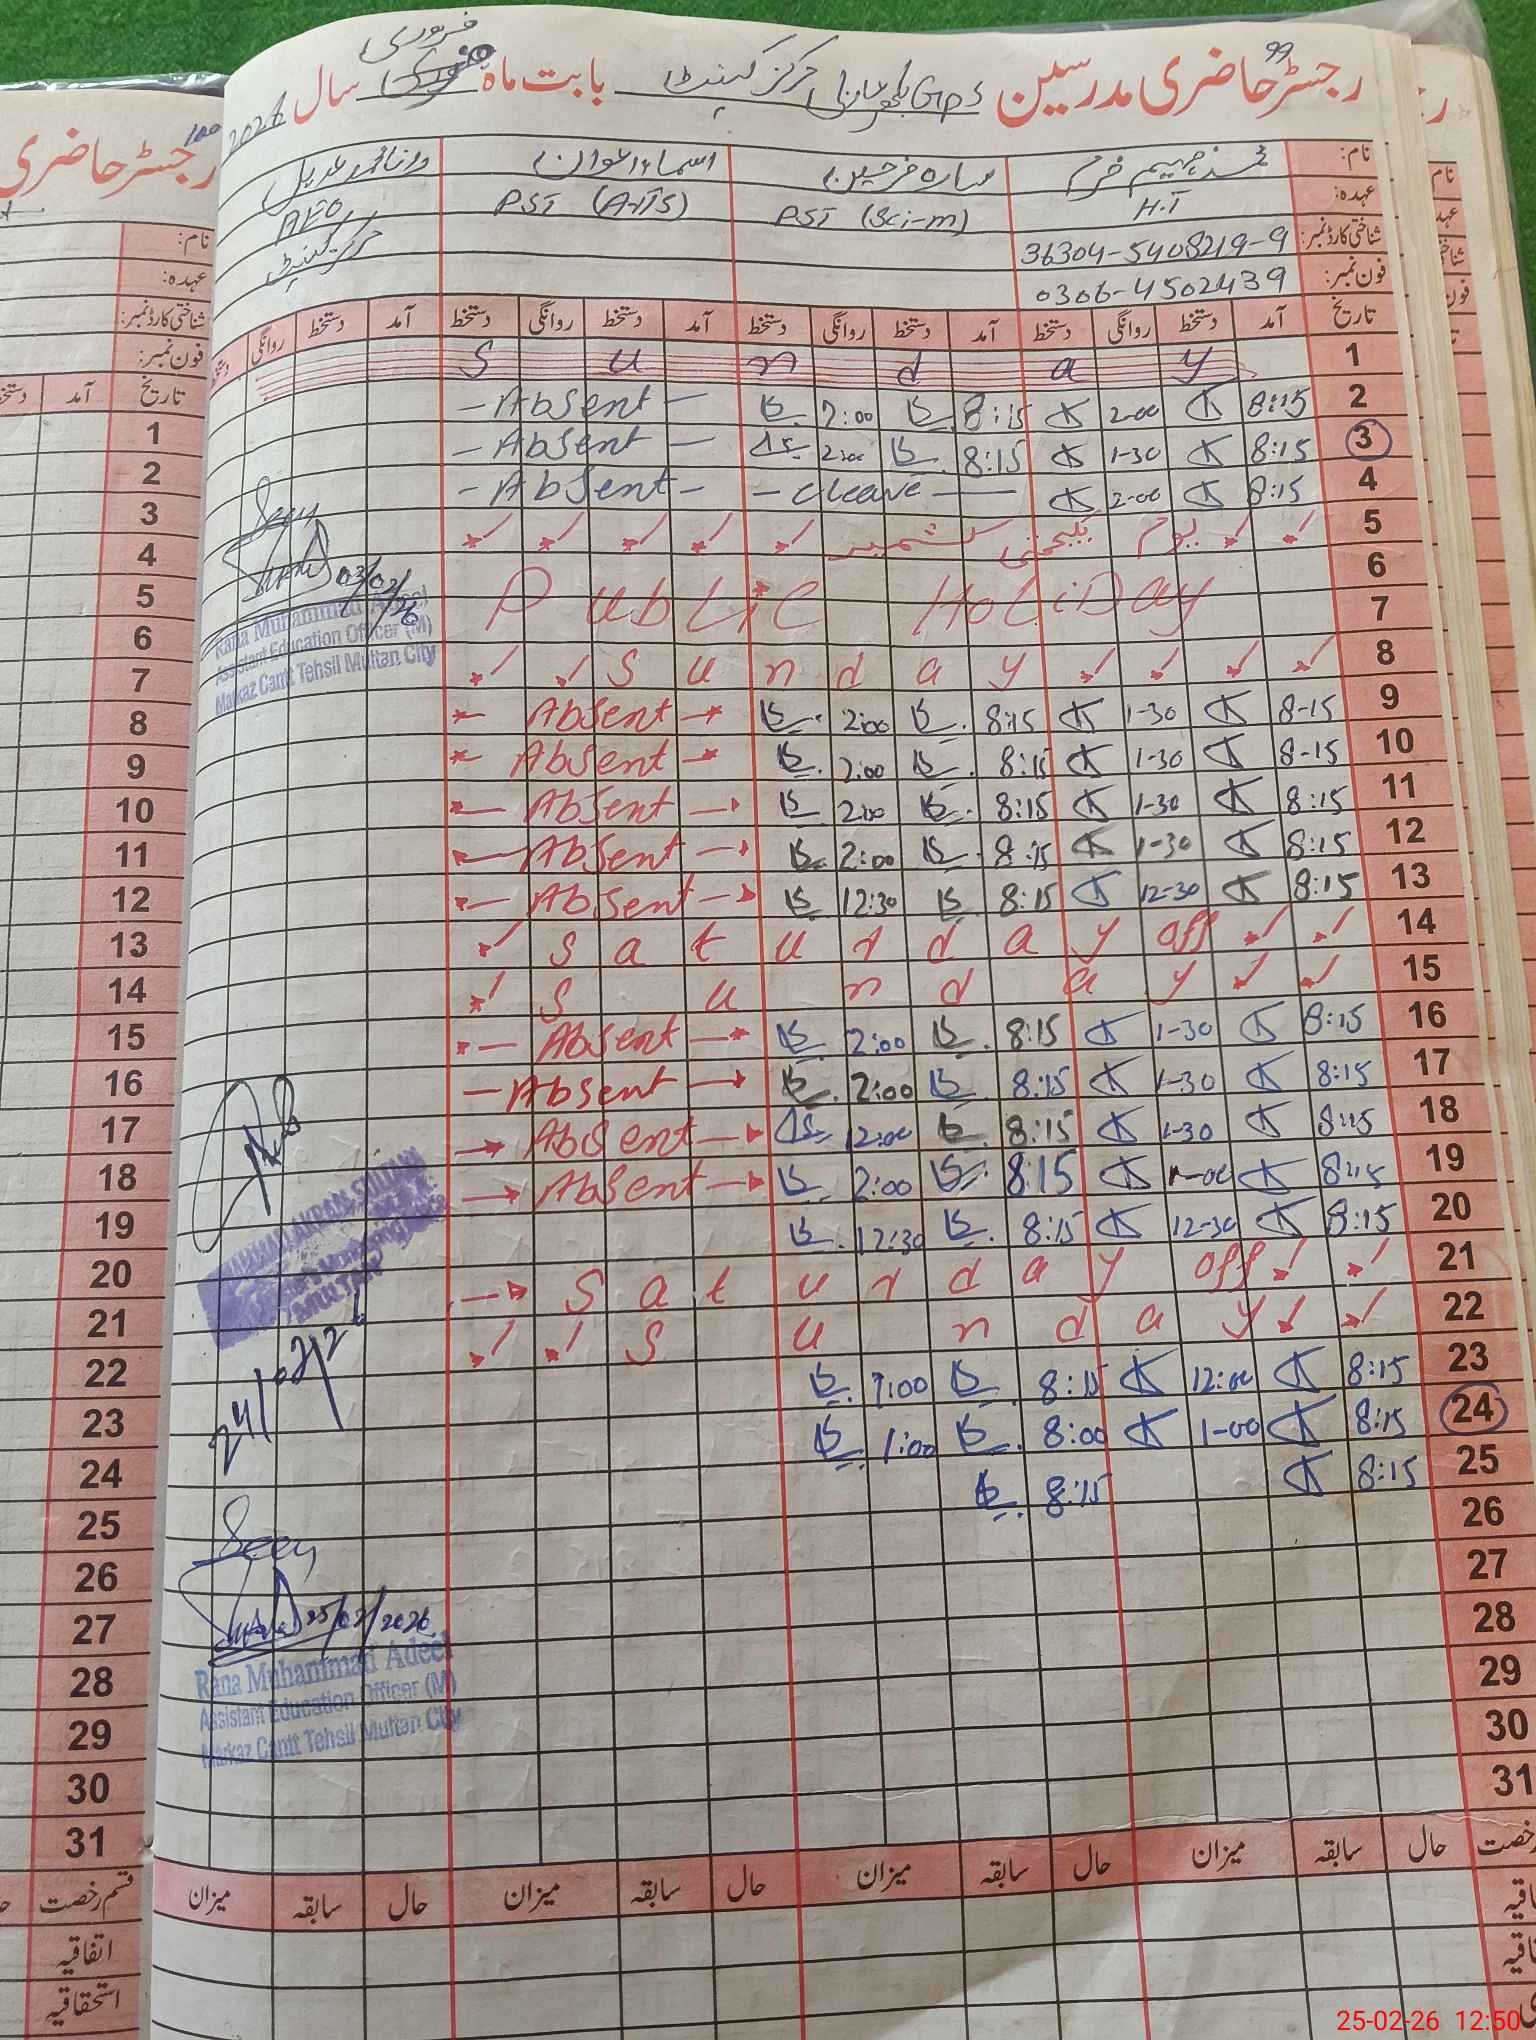 99
رجسٹر حاضری مدرسین GPS مرکز کینٹ بابت ماہ فروری سال 2026
نام: سارہ فرحین اسماء اعوان رانا محمد عدیل
عہدہ: H.T PST (Sci-m) PST (Arts) AEO
شناختی کارڈ نمبر: 36304-5408219-9 مرکز کینٹ
فون نمبر: 0306-4502439
تاریخ آمد دستخط روانگی دستخط آمد دستخط روانگی دستخط آمد دستخط روانگی دستخط آمد دستخط روانگی دستخط
1 Sunday
2 8:15 2-00 8:15 2:00 -Absent-
3 8:15 1-30 8:15 2:00 -Absent-
4 8:15 2-00 -cleave- -Absent-
5 یوم یکجہتی کشمیر
6
7 Public Holiday
8 Sunday
9 8-15 1-30 8:15 2:00 Absent
10 8-15 1-30 8:15 2:00 Absent
11 8:15 1-30 8:15 2:00 Absent
12 8:15 1-30 8:15 2:00 Absent
13 8:15 12-30 8:15 12:30 Absent
14 Saturday off
15 Sunday
16 8:15 1-30 8:15 2:00 Absent
17 8:15 1-30 8:15 2:00 -Absent
18 8:15 1-30 8:15 12:00 Absent
19 8:15 8:15 2:00 Absent
20 8:15 12-30 8:15 12:30
21 Saturday off
22 Sunday
23 8:15 12:00 8:15 1:00
24 8:15 1-00 8:00 1:00
25 8:15 8:15
26
27
28
29
30
31
رخصت حال سابقہ میزان حال سابقہ میزان حال سابقہ میزان حال سابقہ میزان
Seen
03/02/26
Rana Muhammad Adeel
Assistant Education Officer (M)
Markaz Cantt Tehsil Multan City
MULTAN
24/02/26
Seen
25/02/2026
Rana Muhammad Adeel
Assistant Education Officer (M)
Markaz Cantt Tehsil Multan City
100
رجسٹر حاضری
نام:
عہدہ:
شناختی کارڈ نمبر:
فون نمبر:
تاریخ آمد
1
2
3
4
5
6
7
8
9
10
11
12
13
14
15
16
17
18
19
20
21
22
23
24
25
26
27
28
29
30
31
قسم رخصت
اتفاقیہ
استحقاقیہ
25-02-26 12:50